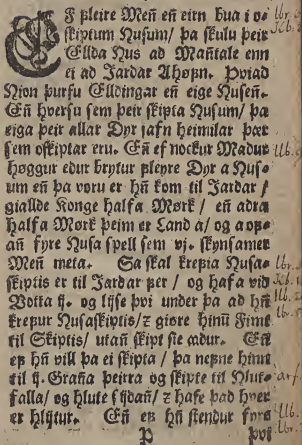 EF fleire Men en eirn bua i oe
skiptum Husum/ þa skulu þeir
Ellda Hus ad Mañtale enn
ei ad Jardar Ahøfn. Þviad
Hion þurfu Elldingar en eige Husen.
En hversu sem þeir skipta Husum/ þa
eiga þeir allar Dyr jafn heimilar þær
sem oskiptar eru. En ef nockur Madur
høggur edur brytur fleyre Dyr a Hus-
um en þa voru er hn kom til Jardar/
giallde Konge halfa Mørk/ en adra
halfa Mørk þeim er Land a/ og aopæ
añ fyre Husa spell sem vj. skynsamer
Men meta. Sa skal krefia Husa-
skiptis er til Jardar fer/ og hafa vid
Votta ij. og lyse þvi under þa ad hn
krefur Husaskiptis/ z giøre hinu Fimt
til Skiptis/ utañ skipt sie adur. En
ef hn vill þa ei skipta/ þa nefne hinn
til ij. Graña þeirra og skipte til Hlut-
falla/ og hlute sijdañ/ z hafe það hver
er hlytur. En ef hn stendur fyre
P þvi